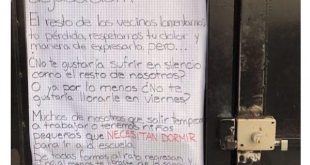 El resto de los vecinos lamentamos
tu pérdida, respetamos tu dolor y
manera de expresarlo, pero...
¿No te gustaría sufrir en silencio
como el resto de nosotros?
O ya por lo menos ¿No te
gustaría llorarle en viernes?
Muchos de nosotros que salir temprano
a trabajar o tenemos niños
pequeños que NECESITAN DORMIR
para ir a la escuela.
De todas formas al rato regresan